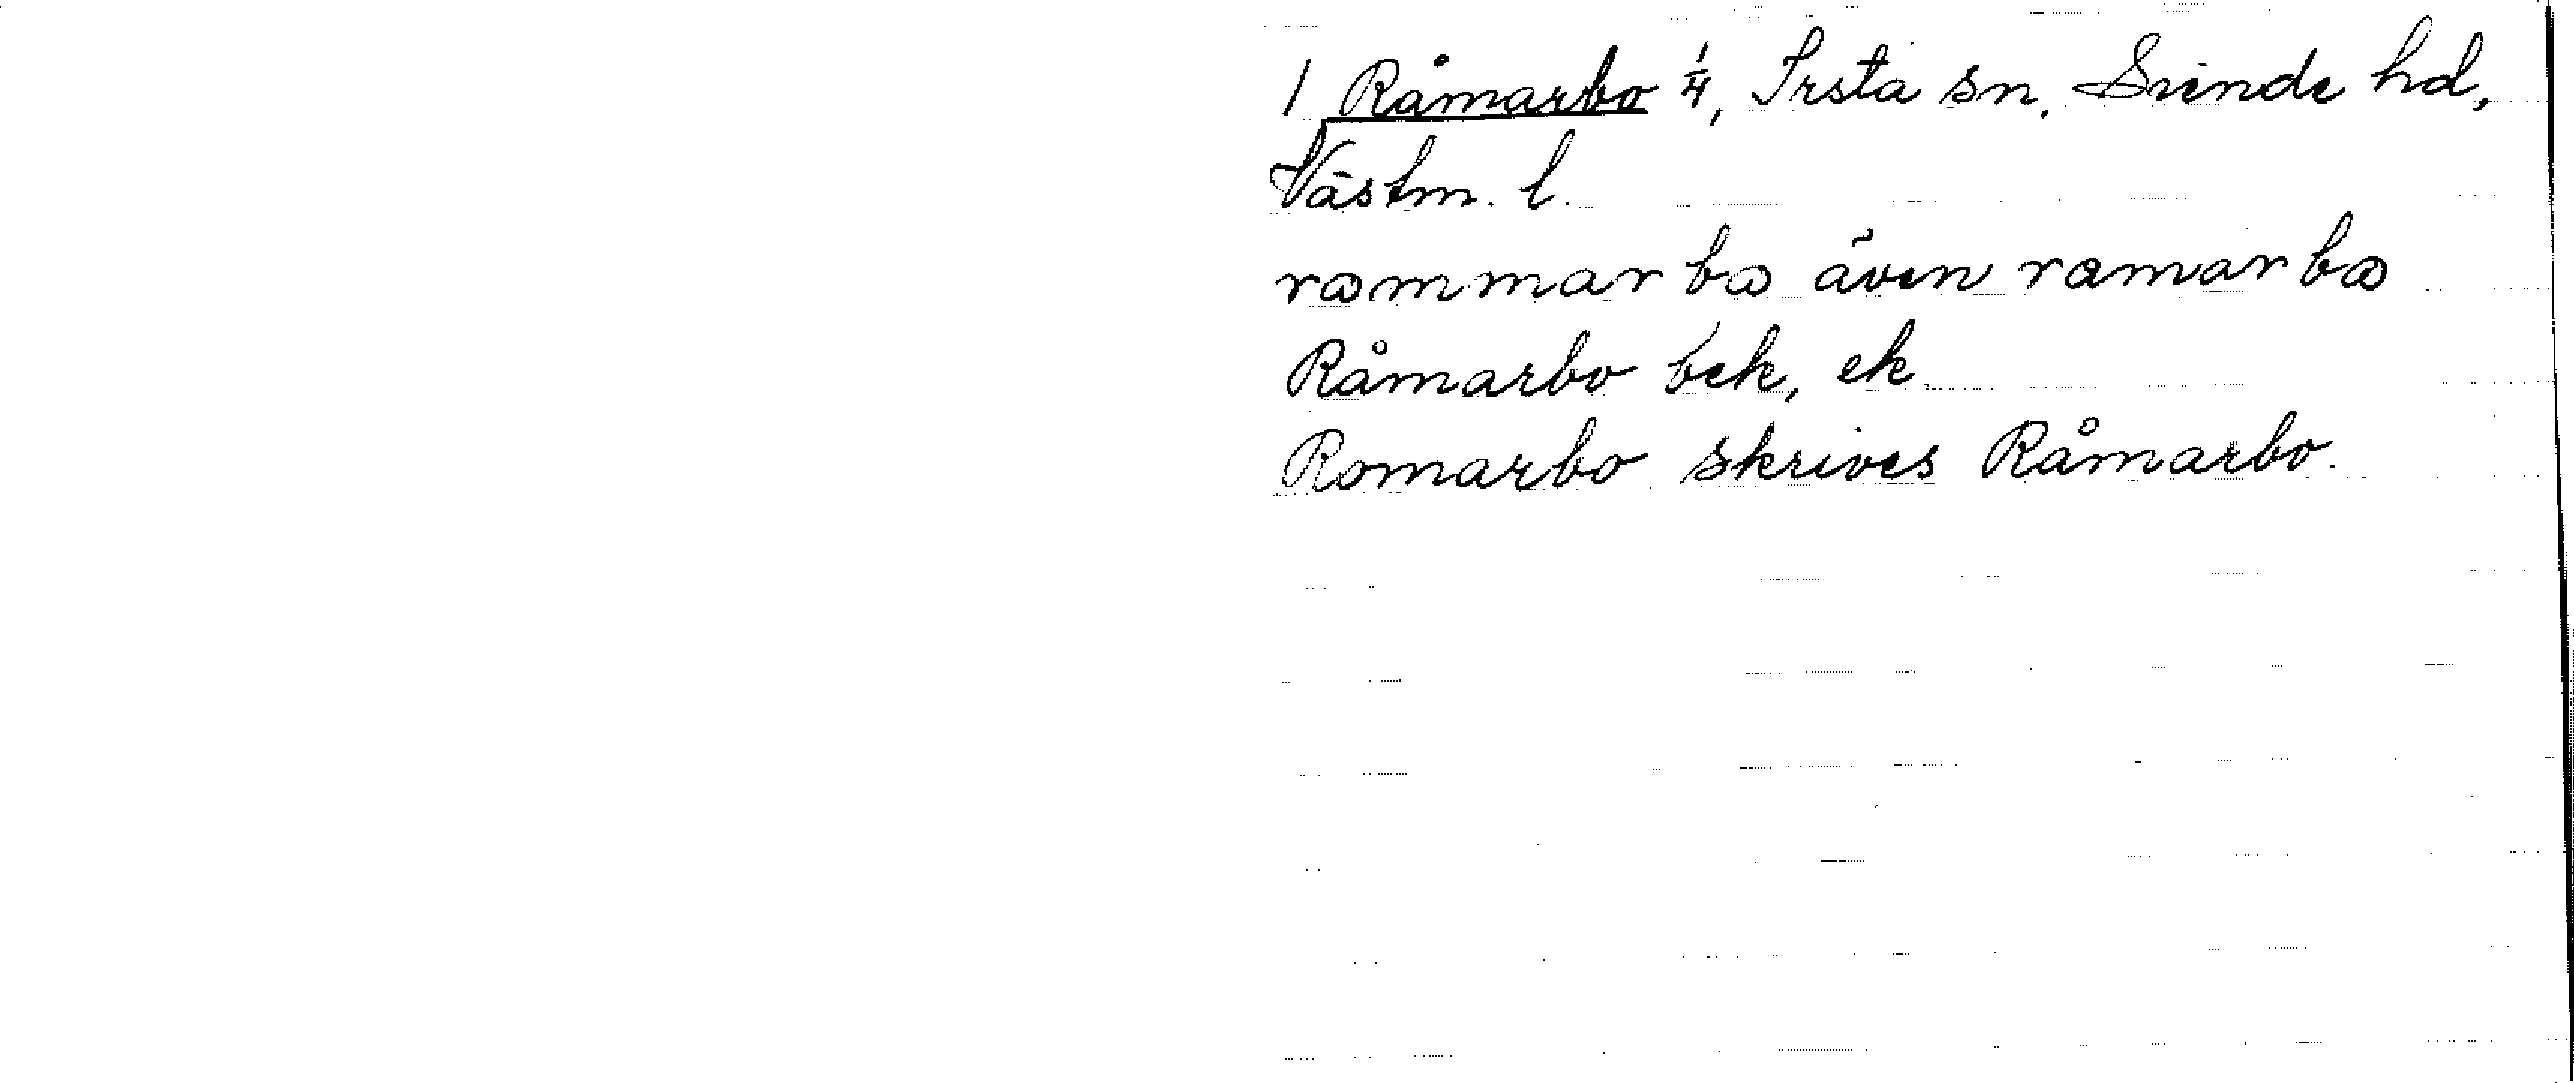 1 Råmarbo 1/4, Irsta sn, Siende hd,
Västm. l.
rommar bo även romar bo
Råmarbo bek, ek
Romarbo skrives Råmarbo.